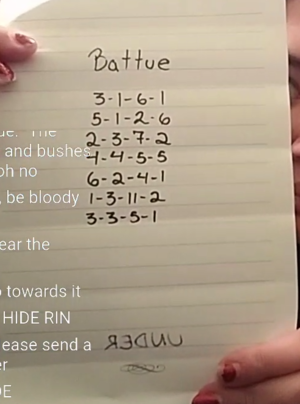 Battue
3-1-6-1
5-1-2-6
The
2-3-7-2
and bushes
4-4-5-5
oh no
6-2-4-1
be bloody
1-3-11-2
3-3-5-1
ear the
towards it
HIDE RIN
ease send a
UNDER